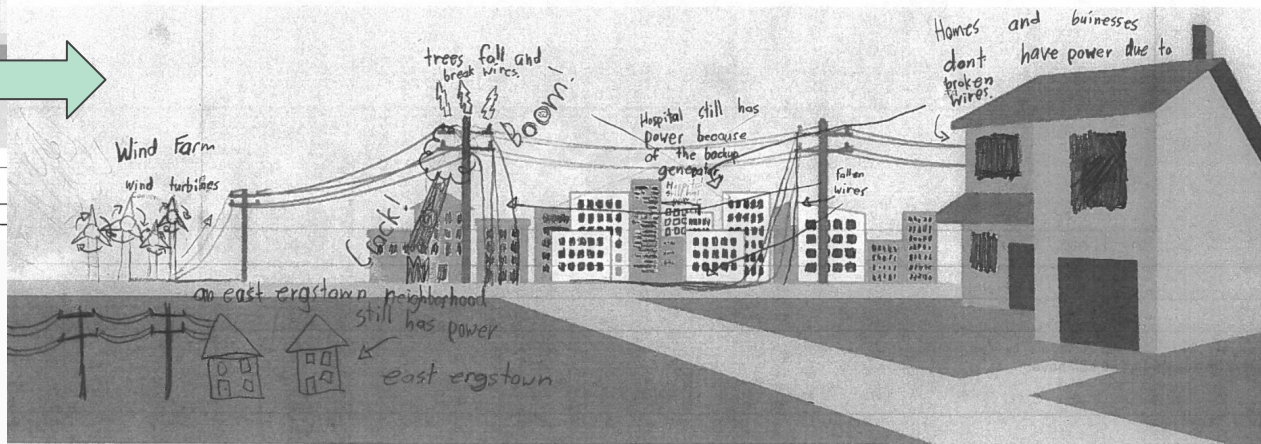 Wind Farm
wind turbines
trees fall and
break wires.
BOOM!
Crack!
Hospital still has
power because
of the backup
generator
Fallen
wires
Homes and buinesses
dont have power due to
broken
wires.
an east ergstown neighborhood
still has power
east ergstown